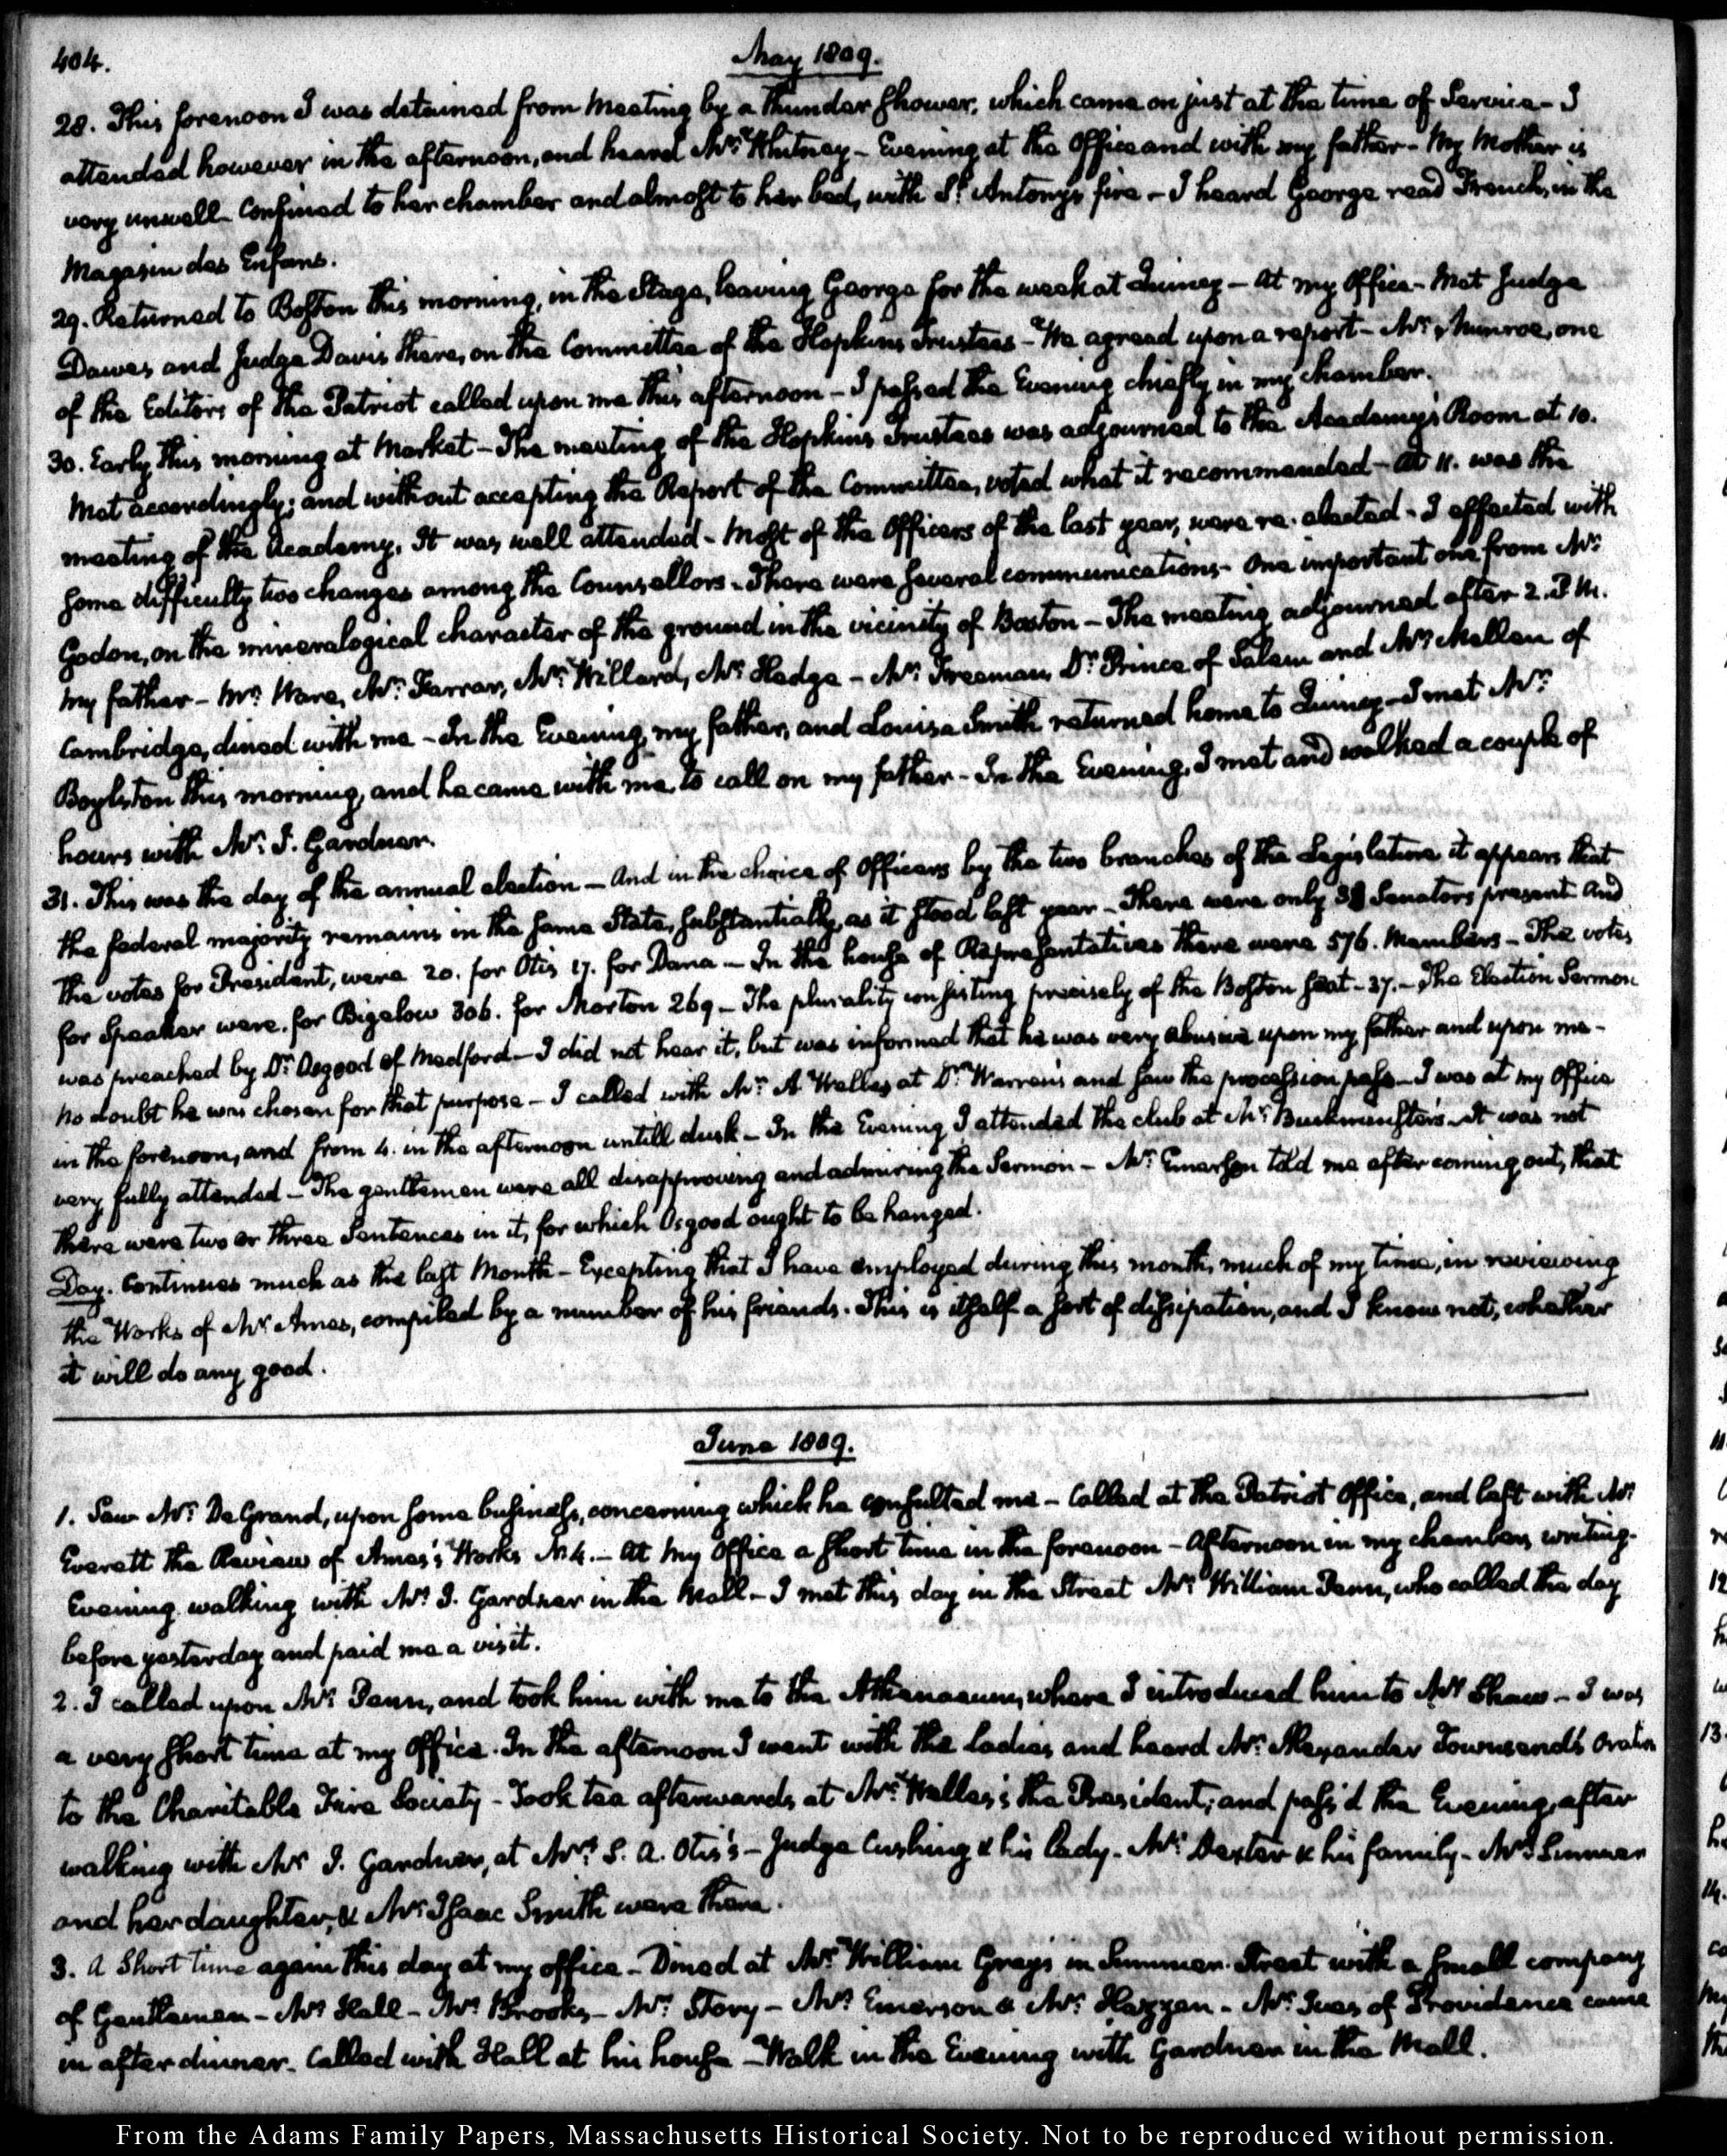 404.
May 1809.
28. This forenoon I was detained from Meeting by a Thunder Shower, which came on just at the time of Service - I
attended however in the afternoon, and heard Mr: Whitney - Evening at the Office and with my father - My Mother is
very unwell - Confined to her chamber and almost to her bed, with St. Antony's fire - I heard George read French, in the
Magasin des Enfans.
29. Returned to Boston this morning, in the Stage, leaving George for the week at Quincy - At my Office - Met Judge
Dawes and Judge Davis there, on the Committee of the Hopkins Trustees - We agreed upon a report - Mr: Munroe, one
of the Editors of the Patriot called upon me this afternoon - I passed the Evening chiefly in my chamber.
30. Early this morning at Market - The meeting of the Hopkins Trustees was adjourned to the Academy's Room at 10.
Met accordingly; and without accepting the Report of the Committee, voted what it recommended - At 11. was the
meeting of the Academy. It was well attended - Most of the Officers of the last year, were re-elected - I effected with
some difficulty two changes among the Counsellors - There were several communications - One important one from Mr:
Godon, on the mineralogical character of the ground in the vicinity of Boston - The meeting adjourned after 2. P.M.
My father - Mr: Ware, Mr: Farrar, Mr: Willard, Mr: Hedge - Mr: Freeman, Dr: Prince of Salem and Mr: Mellen of
Cambridge, dined with me - In the Evening, my father, and Louisa Smith returned home to Quincy - I met Mr:
Boylston this morning, and he came with me, to call on my father - In the Evening, I met and walked a couple of
hours with Mr: J. Gardner.
31. This was the day of the annual election - And in the choice of Officers by the two branches of the Legislature it appears that
the federal majority remains in the same State, substantially, as it stood last year - There were only 38 Senators present and
the votes for President, were 20. for Otis 17. for Dana - In the house of Representatives there were 576. Members - The votes
for Speaker were. for Bigelow 306. for Morton 269 - The plurality consisting precisely of the Boston seat - 37. - The Election Sermon
was preached by Dr: Osgood of Medford - I did not hear it, but was informed that he was very abusive upon my father and upon me -
No doubt he was chosen for that purpose - I called with Mr: A Welles at Dr: Warren's and saw the procession pass - I was at my Office
in the forenoon, and from 4. in the afternoon untill dusk - In the Evening I attended the club at Mr: Buckminster's. It was not
very fully attended - The gentlemen were all disapproving and admiring the Sermon - Mr: Emerson told me after coming out, that
there were two or three sentences in it, for which Osgood ought to be hanged.
Day. Continues much as the last Month - Excepting that I have employed during this month, much of my time, in reviewing
the Works of Mr: Ames, compiled by a number of his friends. This is itself a sort of dissipation, and I know not, whether
it will do any good.
June 1809.
1. Saw Mr: DeGrand, upon some business, concerning which he consulted me - Called at the Patriot Office, and left with Mr:
Everett the Review of Ames's Works N. 4. - At my Office a short time in the forenoon - Afternoon in my chamber, writing -
Evening walking with Mr: J. Gardner in the Mall - I met this day in the Street Mr: William Penn, who called the day
before yesterday and paid me a visit.
2. I called upon Mr: Penn, and took him with me to the Athenaeum, where I introduced him to Mr: Shaw - I was
a very short time at my Office. In the afternoon I went with the Ladies and heard Mr: Alexander Townsend's oration
to the Charitable Fire Society - Took tea afterwards at Mr: Welles's the President; and pass'd the Evening, after
walking with Mr: J. Gardner, at Mr: S. A. Otis's - Judge Cushing & his Lady - Mr: Dexter & his family - Mrs: Sumner
and her daughter, & Mr: Isaac Smith were there.
3. A Short time again this day at my office - Dined at Mr: William Gray's in Summer Street with a small company
of Gentlemen - Mr: Hall - Mr: Brooks - Mr: Story - Mr: Emerson & Mr: Hazzen - Mr: Ives of Providence came
in after dinner - Called with Hall at his house - Walk in the Evening with Gardner in the Mall.
From the Adams Family Papers, Massachusetts Historical Society. Not to be reproduced without permission.